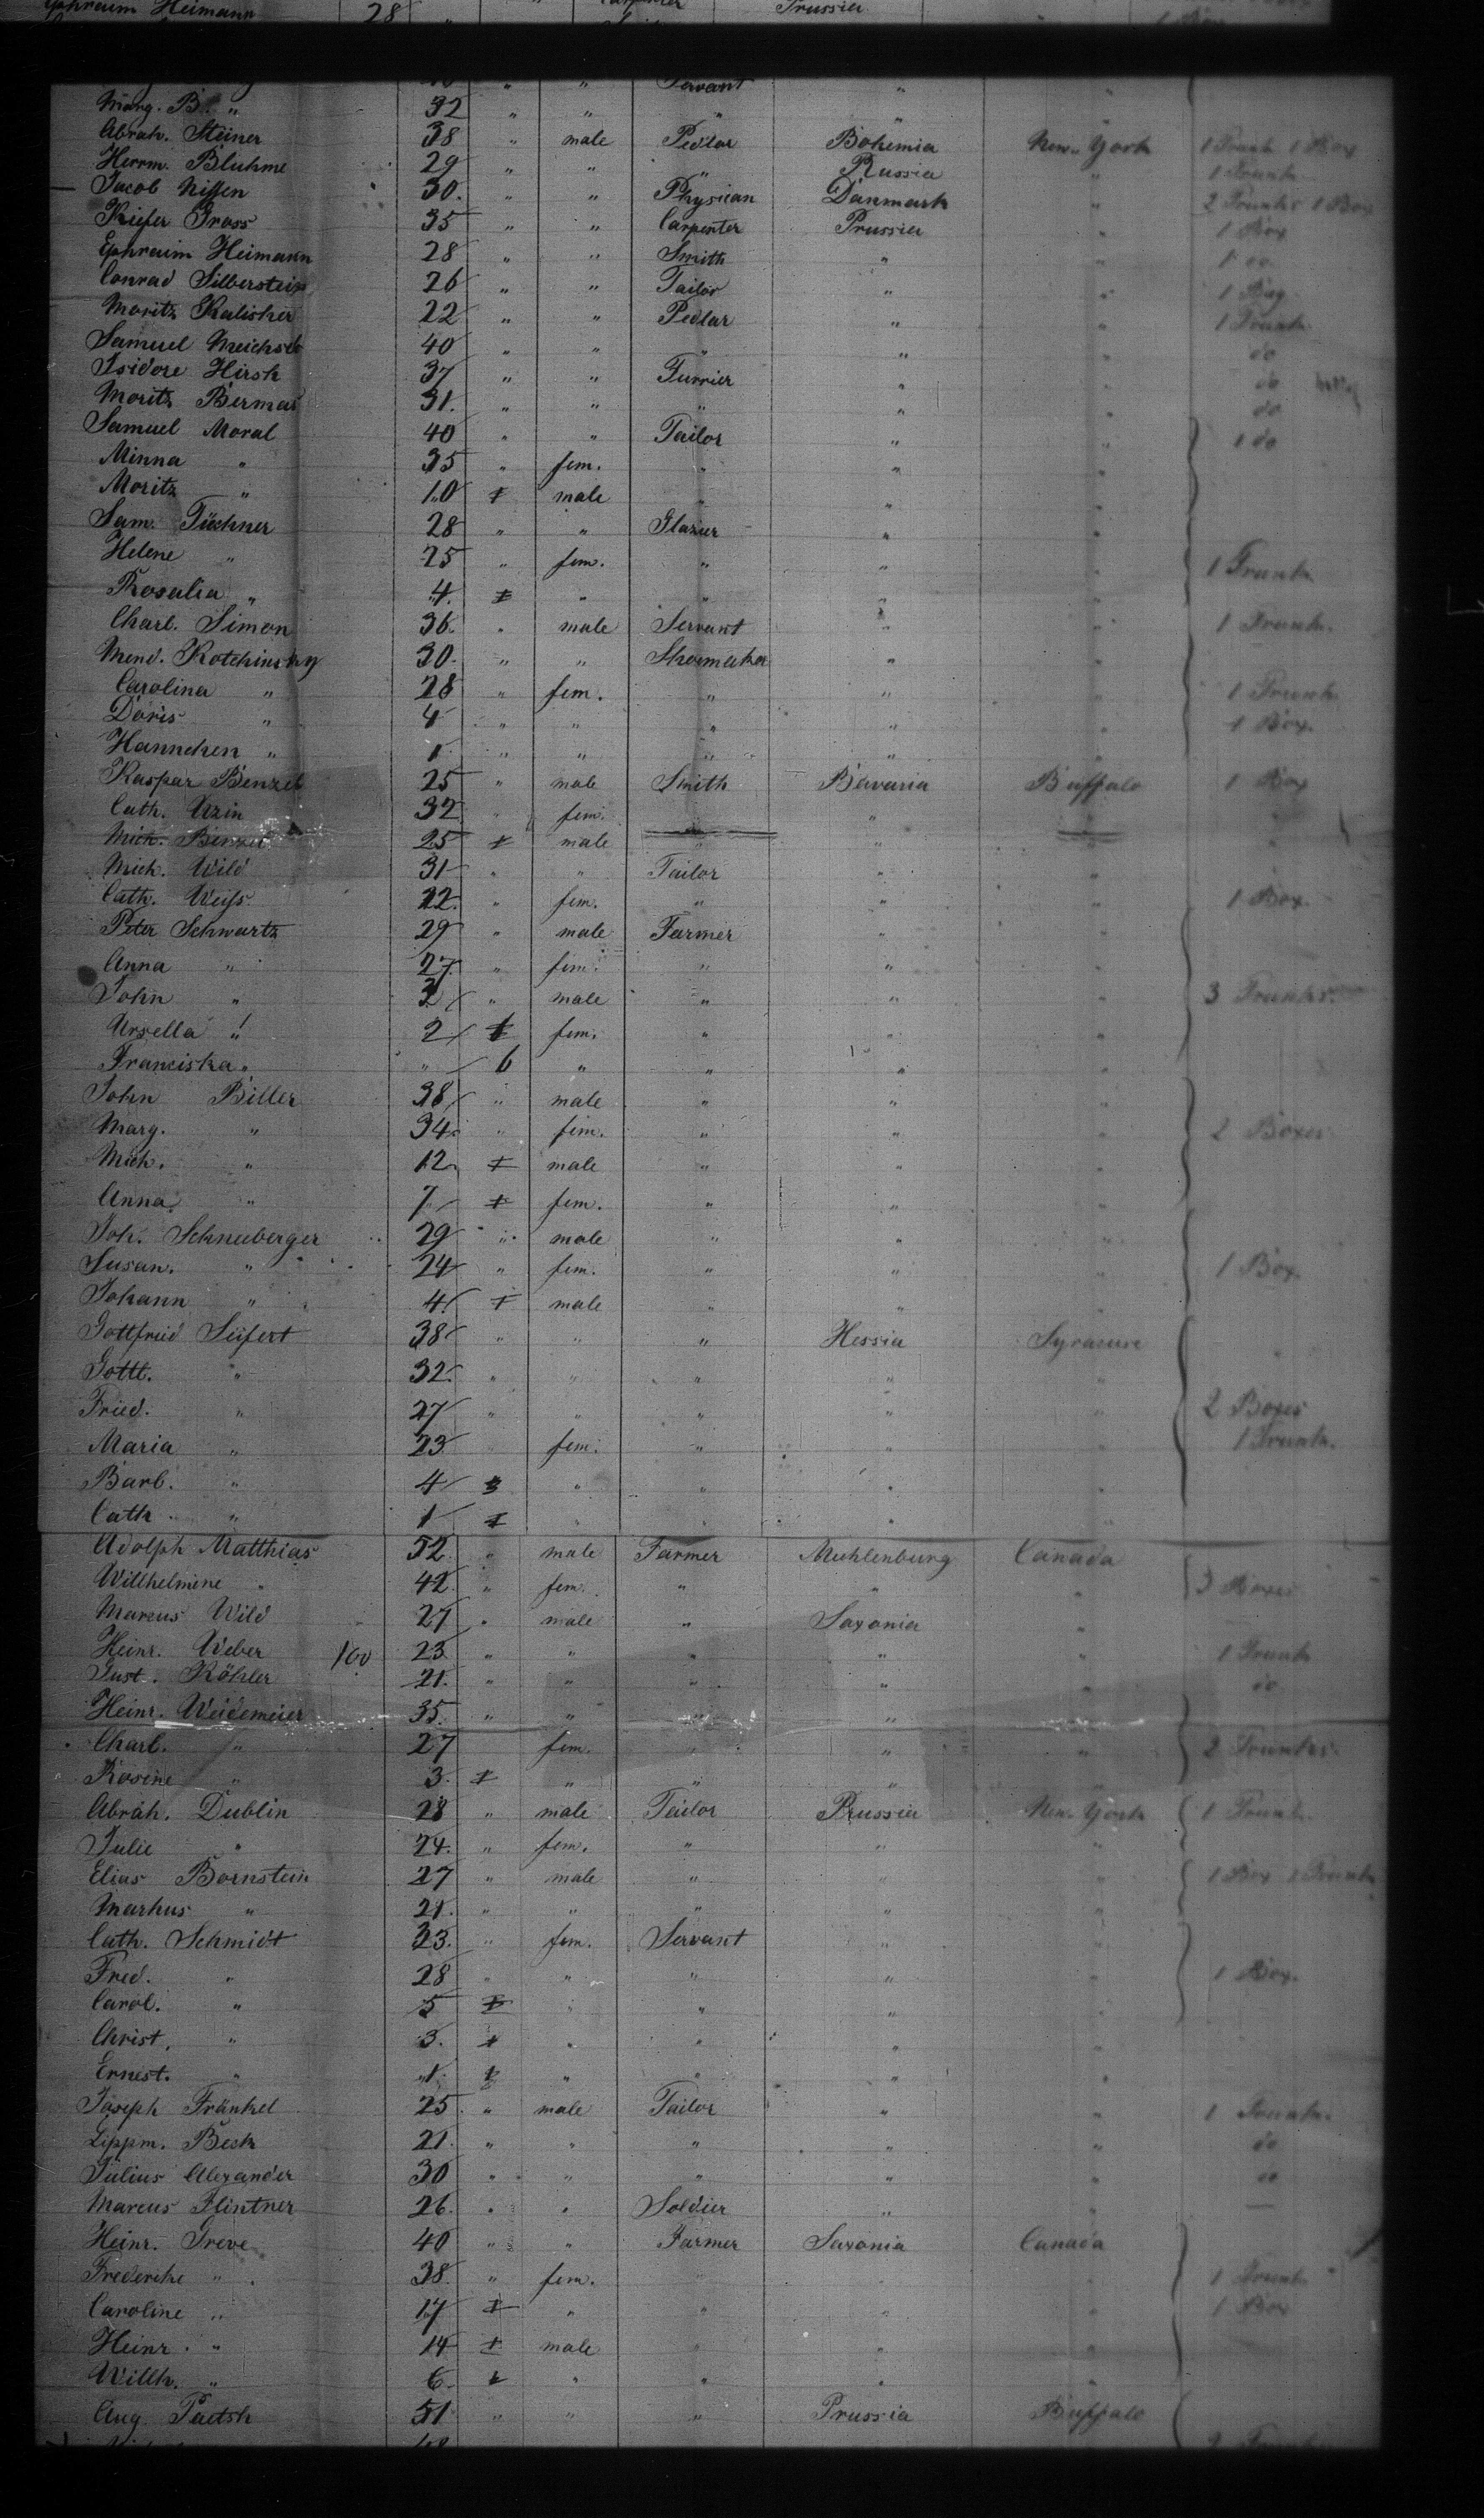 Ephraim Heimann 28 " Carpenter Prussia
" " Servant "
Marg. B. " 32 " " " "
Abrah. Steiner 38 " male Pedlar Bohemia New-York 1 Trunk 1 Box
Herrm. Bluhme 29 " " " Russia " 1 Trunk
Jacob Nissen 30. " " Physician Danmark " 2 Trunks 1 Box
Kiefer Gross 35 " " Carpenter Prussia " 1 Box
Ephraim Heimann 28 " " Smith " " 1 do
Conrad Silberstein 26 " " Tailor " " 1 Bag
Moritz Kalisher 22 " " Pedlar " " 1 Trunk
Samuel 40 " " " " " do
Isidore Hirsh 37 " " Furrier " " do
Moritz Berman 31. " " " " " do
Samuel Moral 40 " " Tailor " " 1 do
Minna " 35 " fem. " " "
Moritz " 10 + male " " "
Sam. Tüchner 28 " " Glazier " "
Helene " 25 " fem. " " " 1 Trunk
Rosalia " 4. + " " " "
Charl. Simon 36. " male Servant " " 1 Trunk.
Mend. Kotchinsky 30. " " Shoemaker " "
Carolina " 28 " fem. " " " 1 Trunk.
Doris " 4 " " " " " 1 Box.
Hannchen " 1 " " " " "
Kaspar Benzel 25 " male Smith Bavaria Buffalo 1 Box
Cath. Uzin 32 " fem. " " "
Mich. Benzel 25 + male " " "
Mich. Wild 31 " " Tailor " "
Cath. Weiss 22. " fem. " " " 1 Box.
Peter Schwartz 29 " male Farmer " "
Anna " 27. " fem. " " "
John " 3 " male " " " 3 Trunks.
Ursella " 2 + fem. " " "
Franciska " " 6 " " " "
John Biller 38 " male " " "
Marg. " 34. " fem. " " " 2 Boxes
Mich. " 12. + male " " "
Anna " 7 + fem. " " "
Joh. Schneeberger 29 " male " " "
Susan. " 24 " fem. " " " 1 Box.
Johann " 4. + male " " "
Gottfried Seifert 38 " " " Hessia Syracuse
Gottl. " 32. " " " " "
Fried. " 27 " " " " " 2 Boxes
Maria " 23 " fem. " " " 1 Trunk.
Barb. " 4 " " " "
Cath. " 1 + " " " "
Adolph Matthias 52. " male Farmer Mecklenburg Canada
Willhelmine " 42. " fem. " " " 3 Boxes
Marcus Wild 27 " male " Saxonia "
Heinr. Weber 100 23 " " " " " 1 Trunk
Gust. Köhler 21. " " " " " do
Heinr. Weidemeier 35. " " " " "
Charl. " 27 fem. " " " 2 Trunks.
Rosine " 3. + " " " "
Abrah. Dublin 28 " male Tailor Prussia New-York 1 Trunk
Julie " 24. " fem. " " "
Elias Bornstein 27 " male " " " 1 Box 1 Trunk
Markus " 21. " " " " "
Cath. Schmidt 33. " fem. Servant " "
Fred. " 28 " " " " " 1 Box.
Carol. " 5 + " " " "
Christ. " 3. + " " " "
Ernest. " 1. + " " " "
Joseph Fränkel 25 " male Tailor " " 1 Trunk.
Lippm. Besk 21. " " " " " do
Julius Alexander 30 " " " " " do
Marcus Flintner 26. " " Soldier " "
Heinr. Greve 40 " " Farmer Saxonia Canada
Frederike " 38. " fem. " " " 1 Trunk
Caroline " 17 + " " " " 1 Box
Heinr. " 14 + male " " "
Willh. " 6. + " " " "
Aug. Paetsh 51 " " " Prussia Buffalo